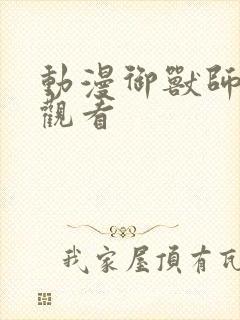 動漫御獸師
觀看
我家屋頂有瓦